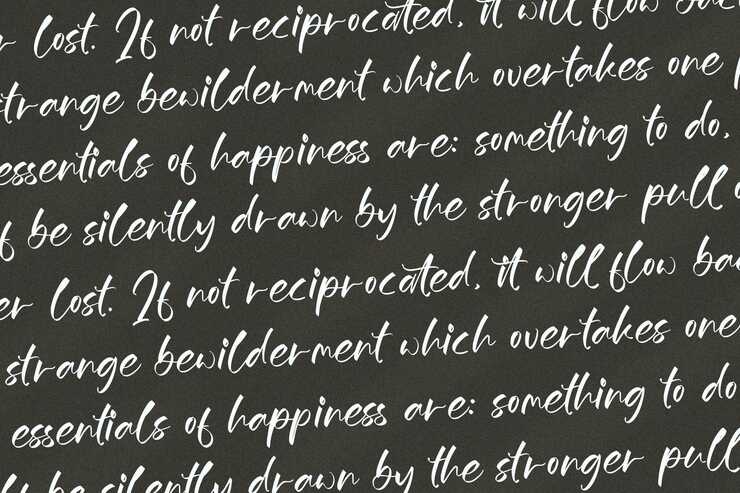 r lost. If not reciprocated, it will flow
strange bewilderment which overtakes one
essentials of happiness are: something to do,
be silently drawn by the stronger pull
er lost. If not reciprocated, it will flow
strange bewilderment which overtakes one
essentials of happiness are: something to do
be silently drawn by the stronger pull